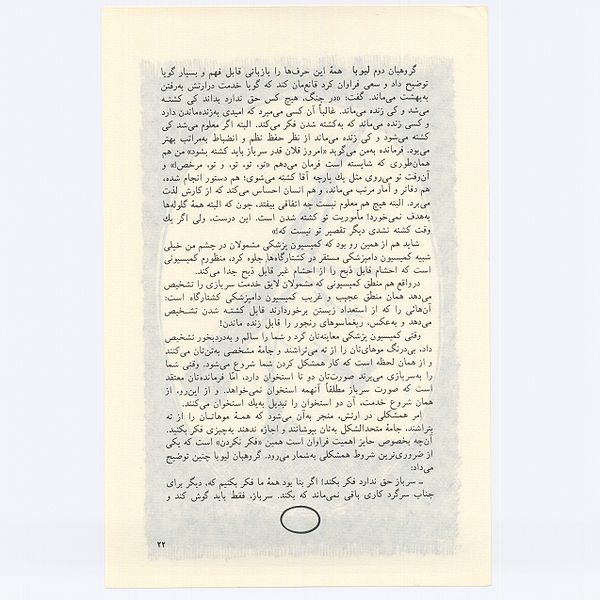 گروهبان دوم لیوبا همهٔ این حرف‌ها را بازبانی قابل فهم و بسیار گویا
توضیح داد و سعی فراوان کرد قانع‌مان کند که گویا خدمت درارتش به‌رفتن
به‌بهشت می‌ماند. گفت: «در جنگ، هیچ کس حق ندارد بداند کی کشته
می‌شد و کی زنده می‌ماند. غالباً آن کسی می‌میرد که امیدی به‌زنده‌ماندن دارد
و کسی زنده می‌ماند که به‌کشته شدن فکر می‌کند. البته اگر معلوم می‌شد کی
کشته می‌شود و کی زنده می‌ماند از نظر حفظ نظم و انضباط به‌مراتب بهتر
می‌بود. فرمانده به‌من می‌گوید «امروز فلان قدر سرباز باید کشته بشود» من هم
همان‌طوری که شایسته است فرمان می‌دهم «تو، تو، تو، و تو، مرخص!» و
آن‌وقت تو می‌روی مثل یك پارچه آقا کشته می‌شوی؛ هم دستور انجام شده،
هم دفاتر و آمار مرتب می‌ماند، و هم انسان احساس می‌کند که از کارش لذت
می‌برد. البته هیچ هم معلوم نیست چه اتفاقی بیفتد، چون که البته همهٔ گلوله‌ها
به‌هدف نمی‌خورد! مأموریت تو کشته شدن است. این درست، ولی اگر یك
وقت کشته نشدی دیگر تقصیر تو نیست که!»
شاید هم از همین رو بود که کمیسیون پزشکی مشمولان در چشم من خیلی
شبیه کمیسیون دامپزشکی مستقر در کشتارگاه‌ها جلوه کرد، منظورم کمیسیونی
است که احشام قابل ذبح را از احشام غیر قابل ذبح جدا می‌کند.
درواقع هم منطق کمیسیونی که مشمولان لایق خدمت سربازی را تشخیص
می‌دهد همان منطق عجیب و غریب کمیسیون دامپزشکی کشتارگاه است:
آن‌هائی را که از استعداد زیستن برخوردارند قابل کشته شدن تشخیص
می‌دهد و به‌عکس، ریغماسوهای رنجور را قابل زنده ماندن!
وقتی کمیسیون پزشکی معاینه‌تان کرد و شما را سالم و به‌دردبخور تشخیص
داد، بی‌درنگ موهای‌تان را از ته می‌تراشند و جامهٔ مشخصی به‌تن‌تان می‌کنند
و از همان لحظه است که کار همشکل کردن شما شروع می‌شود. وقتی شما
را به‌سربازی می‌برند صورت‌تان دو تا استخوان دارد، امّا فرمانده‌تان معتقد
است که صورت سرباز مطلقاً آنهمه استخوان نمی‌خواهد. و از این‌رو، از
همان شروع خدمت، آن دو استخوان را تبدیل به‌یك استخوان می‌کنند.
امر همشکلی در ارتش، منجر به‌آن می‌شود که همهٔ موهاتان را از ته
بتراشند، جامهٔ متحدالشکل به‌تان بپوشانند و اجازه ندهند به‌چیزی فکر بکنید.
آن‌چه بخصوص حایز اهمیت فراوان است همین «فکر نکردن» است که یکی
از ضروری‌ترین شروط همشکلی به‌شمار می‌رود. گروهبان لیوبا چنین توضیح
می‌داد:
ــ سرباز حق ندارد فکر بکند! اگر بنا بود همهٔ ما فکر بکنیم که، دیگر برای
جناب سرگرد کاری باقی نمی‌ماند که بکند. سرباز، فقط باید گوش کند و
۲۲